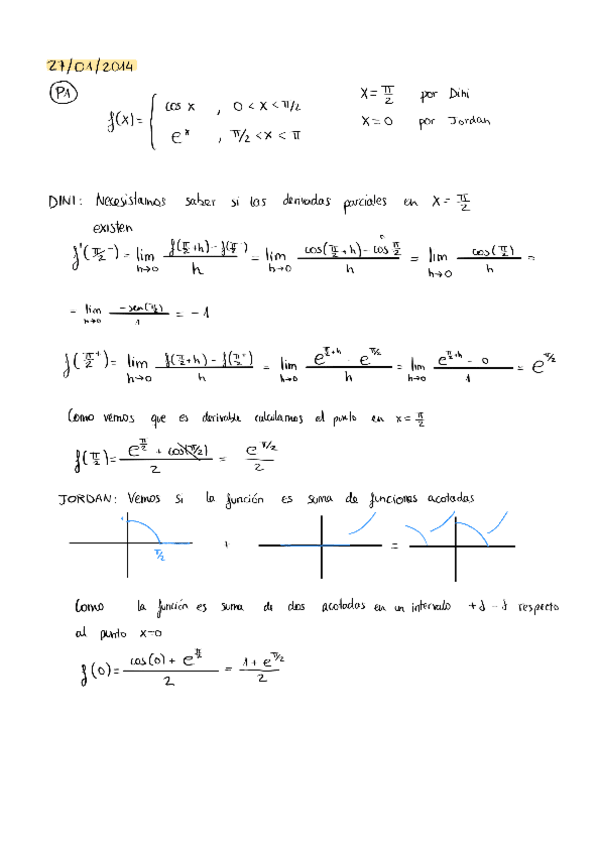 27/01/2014
P1
f(x) = { cos x , 0 < x < π/2
e^x , π/2 < x < π
x = π/2 por Dini
x = 0 por Jordan
DINI: Necesistamos saber si las derivadas parciales en x = π/2
existen
f'(π/2⁻) = lim h→0 (f(π/2+h) - f(π/2⁻))/h = lim h→0 (cos(π/2+h) - cos π/2)/h = lim h→0 cos(π/2)/h =
- lim h→0 -sen(π/2)/1 = -1
f(π/2⁺) = lim h→0 (f(π/2+h) - f(π/2⁺))/h = lim h→0 (e^(π/2+h) - e^(π/2))/h = lim h→0 (e^(π/2+h) - 0)/1 = e^(π/2)
Como vemos que es derivable calculamos el punto en x = π/2
f(π/2) = (e^(π/2) + cos(π/2))/2 = e^(π/2)/2
JORDAN: Vemos si la función es suma de funciones acotadas
π/2 + =
Como la función es suma de dos acotadas en un intervalo +δ -δ respecto
al punto x=0
f(0) = (cos(0) + e^(π/2))/2 = (1 + e^(π/2))/2